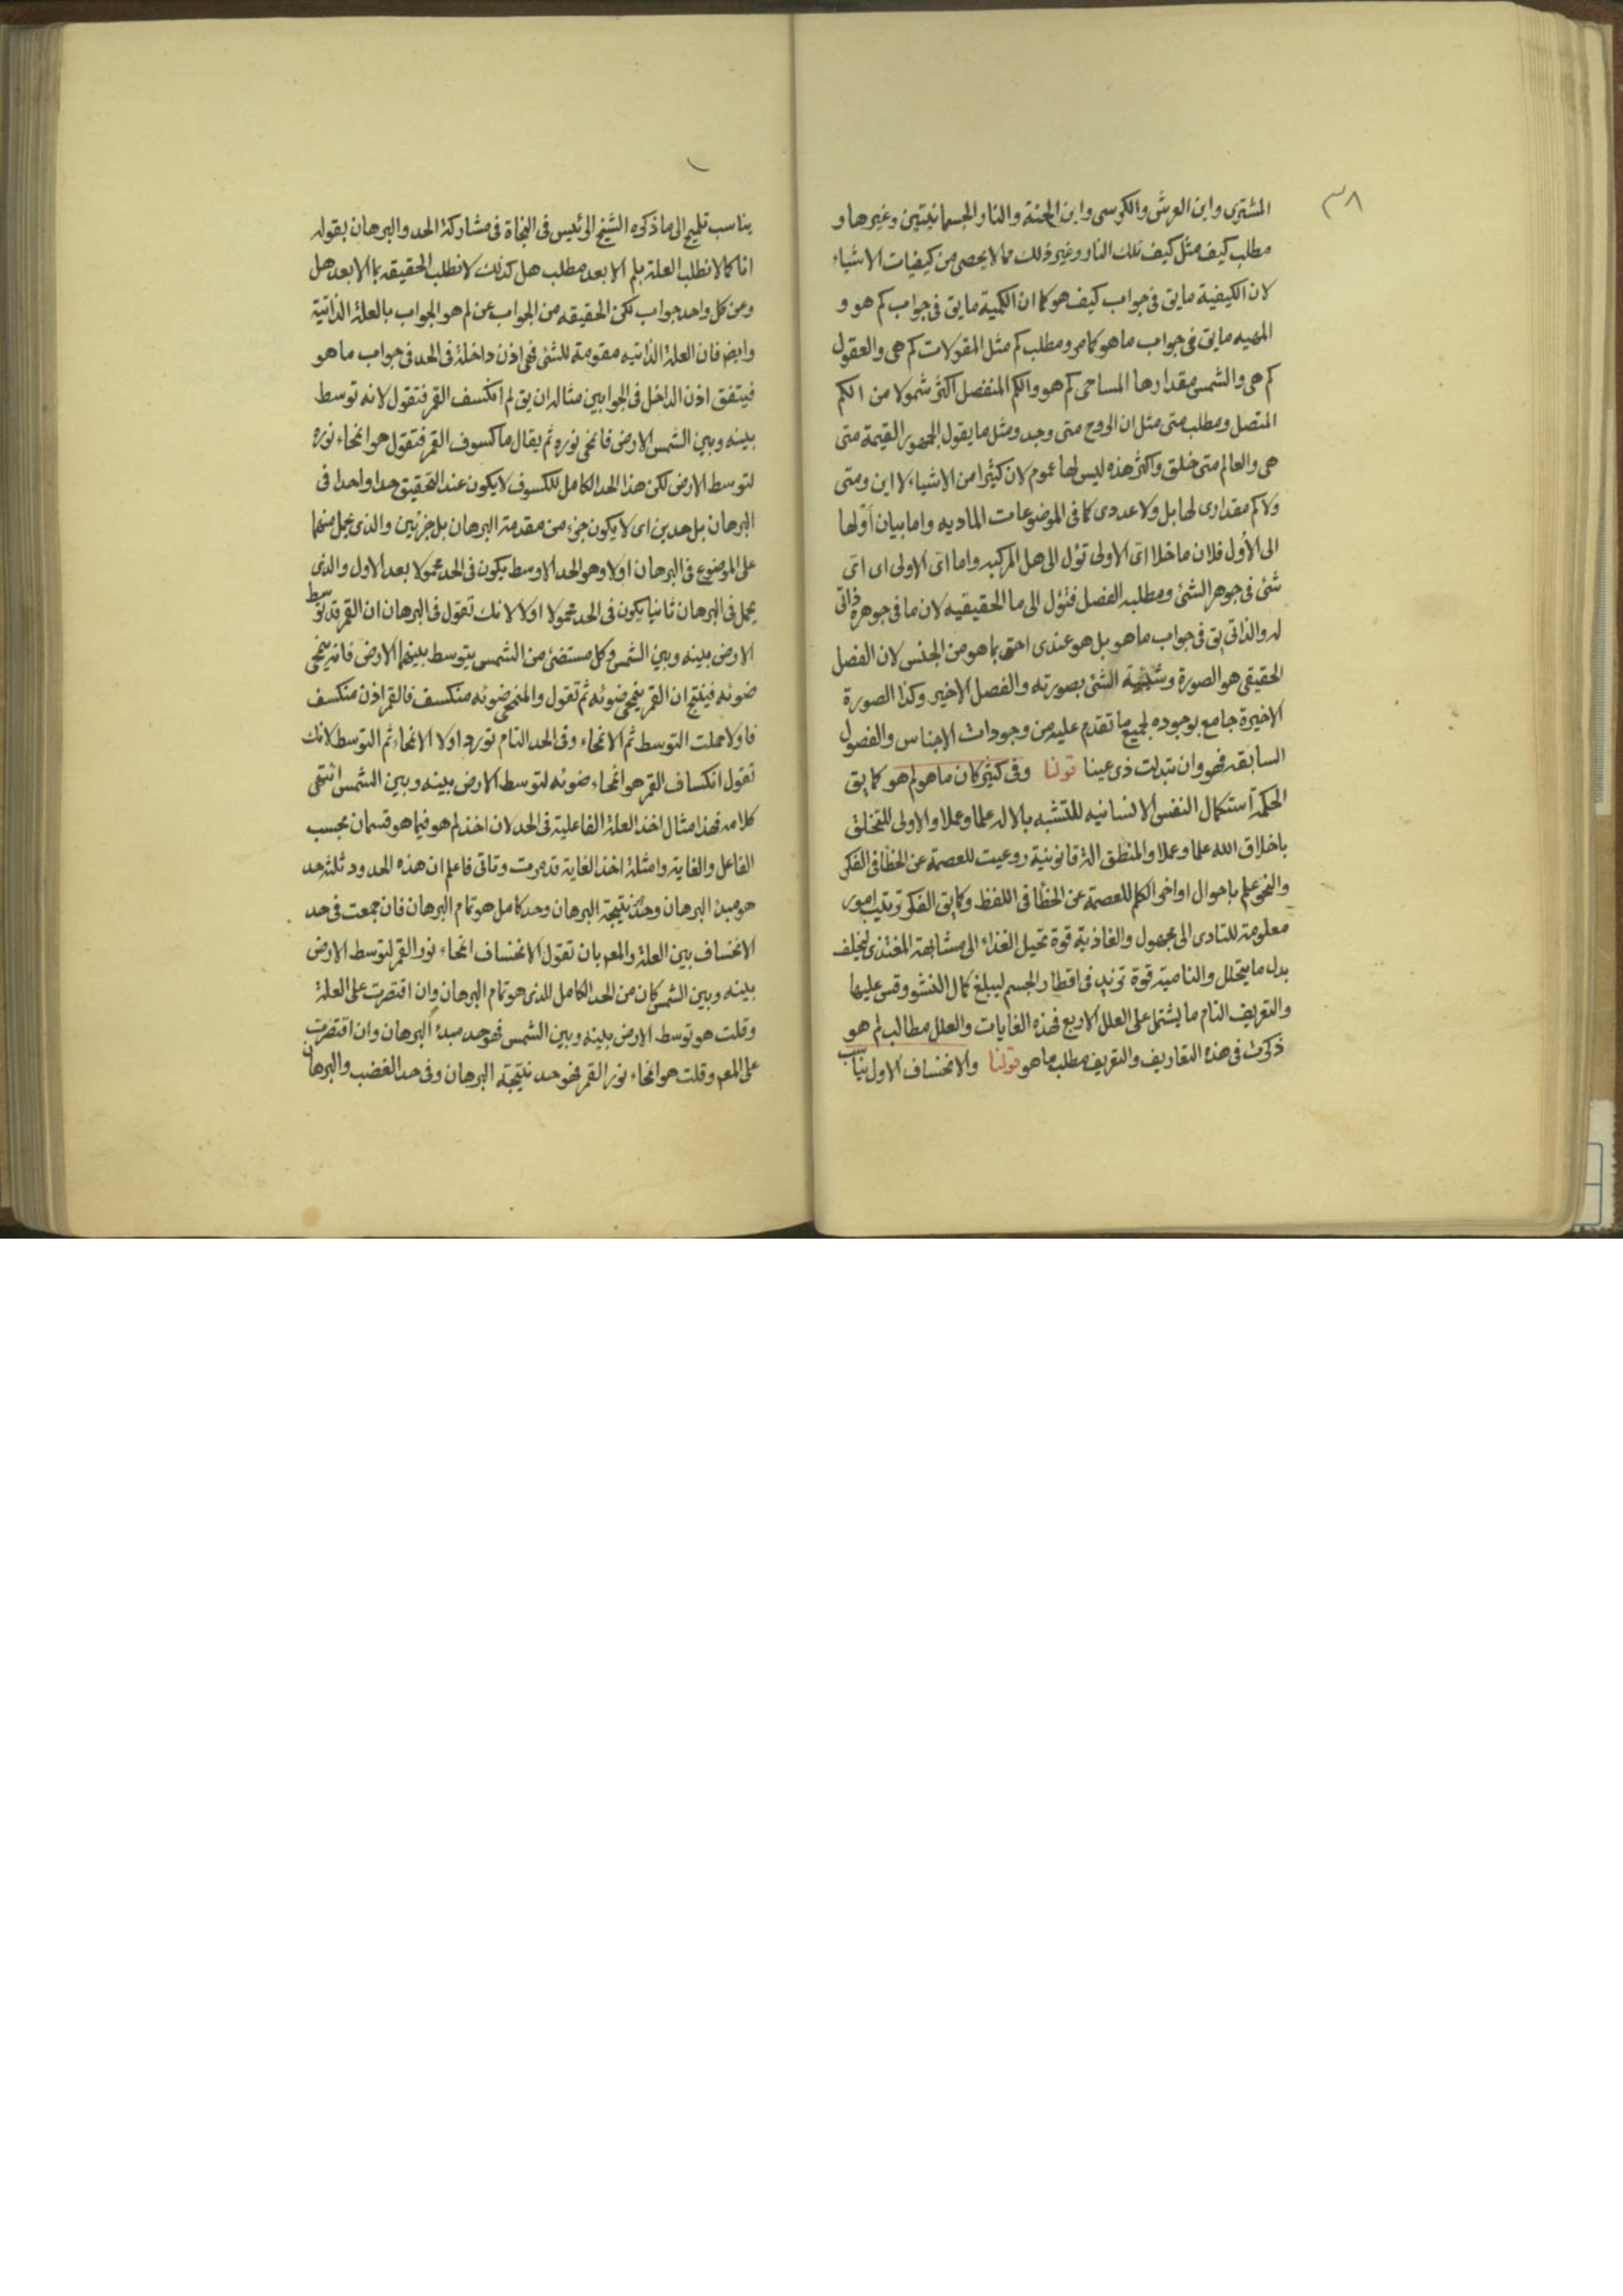 ٣٨
المشترى واين العرش والكرسى واين الجنة والنار الجسمانيتين وغيرها و
مطلب كيف مثل كيف تلك النار وغير ذلك مما لا يحصى من كيفيات الاشياء
لان الكيفية ما يق فى جواب كيف هو كما ان الكمية ما يق فى جواب كم هو و
المهيه ما يق فى جواب ما هو كما مر ومطلب كم مثل المقولات كم هى والعقول
كم هى والشمس مقدارها المساحى كم هو والكم المنفصل اكثر شمولا من الكم
المتصل ومطلب متى مثل ان الروح متى وجد ومثل ما يقول الجمهور القيمة متى
هى والعالم متى خلق واكثر هذه ليس لها عموم لان كثيرا من الاشياء لا اين ومتى
ولا كم مقدارى لها بل ولا عددى كما فى الموضوعات الماديه واما بيان أولها
الى الأول فلان ما خلا اى الاولى تؤل الى هل المركبه واما اى الاولى اى اى
شئ فى جوهر الشئ ومطلبه الفصل فتؤل الى ما الحقيقيه لان ما فى جوهره ذاتى
له والذاتى يق فى جواب ما هو بل هو عندى احق بما هو من الجنس لان الفصل
الحقيقى هو الصورة وشيئية الشئ بصورته والفصل الاخير وكذا الصورة
الاخيرة جامع بوجوده لجميع ما تقدم عليه من وجودات الاجناس والفصول
السابقه فهو وان تبدلت ذى عينا قولنا وفى كثير كان ما هو لم هو كما يق
الحكمة استكمال النفس الانسانيه للتشبه بالاله علما وعملا والاولى للتخلق
باخلاق الله علما وعملا والمنطق الة قانونية روعيت للعصمة عن الخطأ فى الفكر
والنحو علم باحوال اواخر الكلم للعصمة عن الخطأ فى اللفظ وكما يق الفكر ترتيب امور
معلومة للتادى الى مجهول والغاذية قوة تحيل الغذاء الى مشابهة المغتذى ليخلف
بدل ما يتحلل والنامية قوة تزيد فى اقطار الجسم ليبلغ كمال النشو وقس عليها
والتعريف التام ما يشتمل على العلل الاربع فهذه الغايات والعلل مطالب لم هو
ذكرت فى هذه التعاريف والتعريف مطلب ما هو قولنا والانخساف الاول يناسب
يناسب تلميح الى ما ذكره الشيخ الرئيس فى النجاة فى مشاركة الحد والبرهان بقوله
انا كما لا نطلب العلة بلم الا بعد مطلب هل كذلك لا نطلب الحقيقه بما الا بعد هل
وعن كل واحد جواب لكن الحقيقه من الجواب عن لم هو الجواب بالعلة الذاتية
وايض فان العلة الذاتيه مقومة للشئ فهى اذن داخلة فى الحد فى جواب ما هو
فيتفق اذن الداخل فى الجوابين مثاله ان يق لم انكسف القمر فتقول لانه توسط
بينه وبين الشمس الارض فانمحى نوره ثم يقال ما كسوف القمر فتقول هو انمحاء نوره
لتوسط الارض لكن هذا الحد الكامل للكسوف لا يكون عند التحقيق حدا واحدا فى
البرهان بل حدين اى لا يكون جزء من مقدمة البرهان بل جزئين والذى يحمل منهما
على الموضوع فى البرهان اولا وهو الحد الاوسط يكون فى الحد محمولا بعد الاول والذى
يحمل فى البرهان ثانيا يكون فى الحد محمولا اولا لانك تقول فى البرهان ان القمر قد توسط
الارض بينه وبين الشمس وكل مستضئ من الشمس يتوسط بينهما الارض فانه ينمحى
ضوئه فينتج ان القمر ينمحى ضوئه ثم تقول والمنمحى ضوئه منكسف فالقمر اذن منكسف
فاولا حملت التوسط ثم الانمحاء وفى الحد التام تورد اولا الانمحاء ثم التوسط لانك
تقول انكساف القمر هو انمحاء ضوئه لتوسط الارض بينه وبين الشمس انتهى
كلامه فهذا مثال اخذ العلة الفاعلية فى الحد لان اخذ لم هو فيما هو قسمان بحسب
الفاعل والغاية وامثلة اخذ الغاية قد مرت وتاتى فاعلم ان هذه الحدود ثلثه حد
هو مبدء البرهان وحد نتيجة البرهان وحد كامل هو تمام البرهان فان جمعت فى حد
الانخساف بين العلة والمعر بان تقول الانخساف انمحاء نور القمر لتوسط الارض
بينه وبين الشمس كان من الحد الكامل للذى هو تمام البرهان وان اقتصرت على العلة
وقلت هو توسط الارض بينه وبين الشمس فهو حد مبدء البرهان وان اقتصرت
على المعر وقلت هو انمحاء نور القمر فهو حد نتيجة البرهان وفى حد الغضب والبرهان